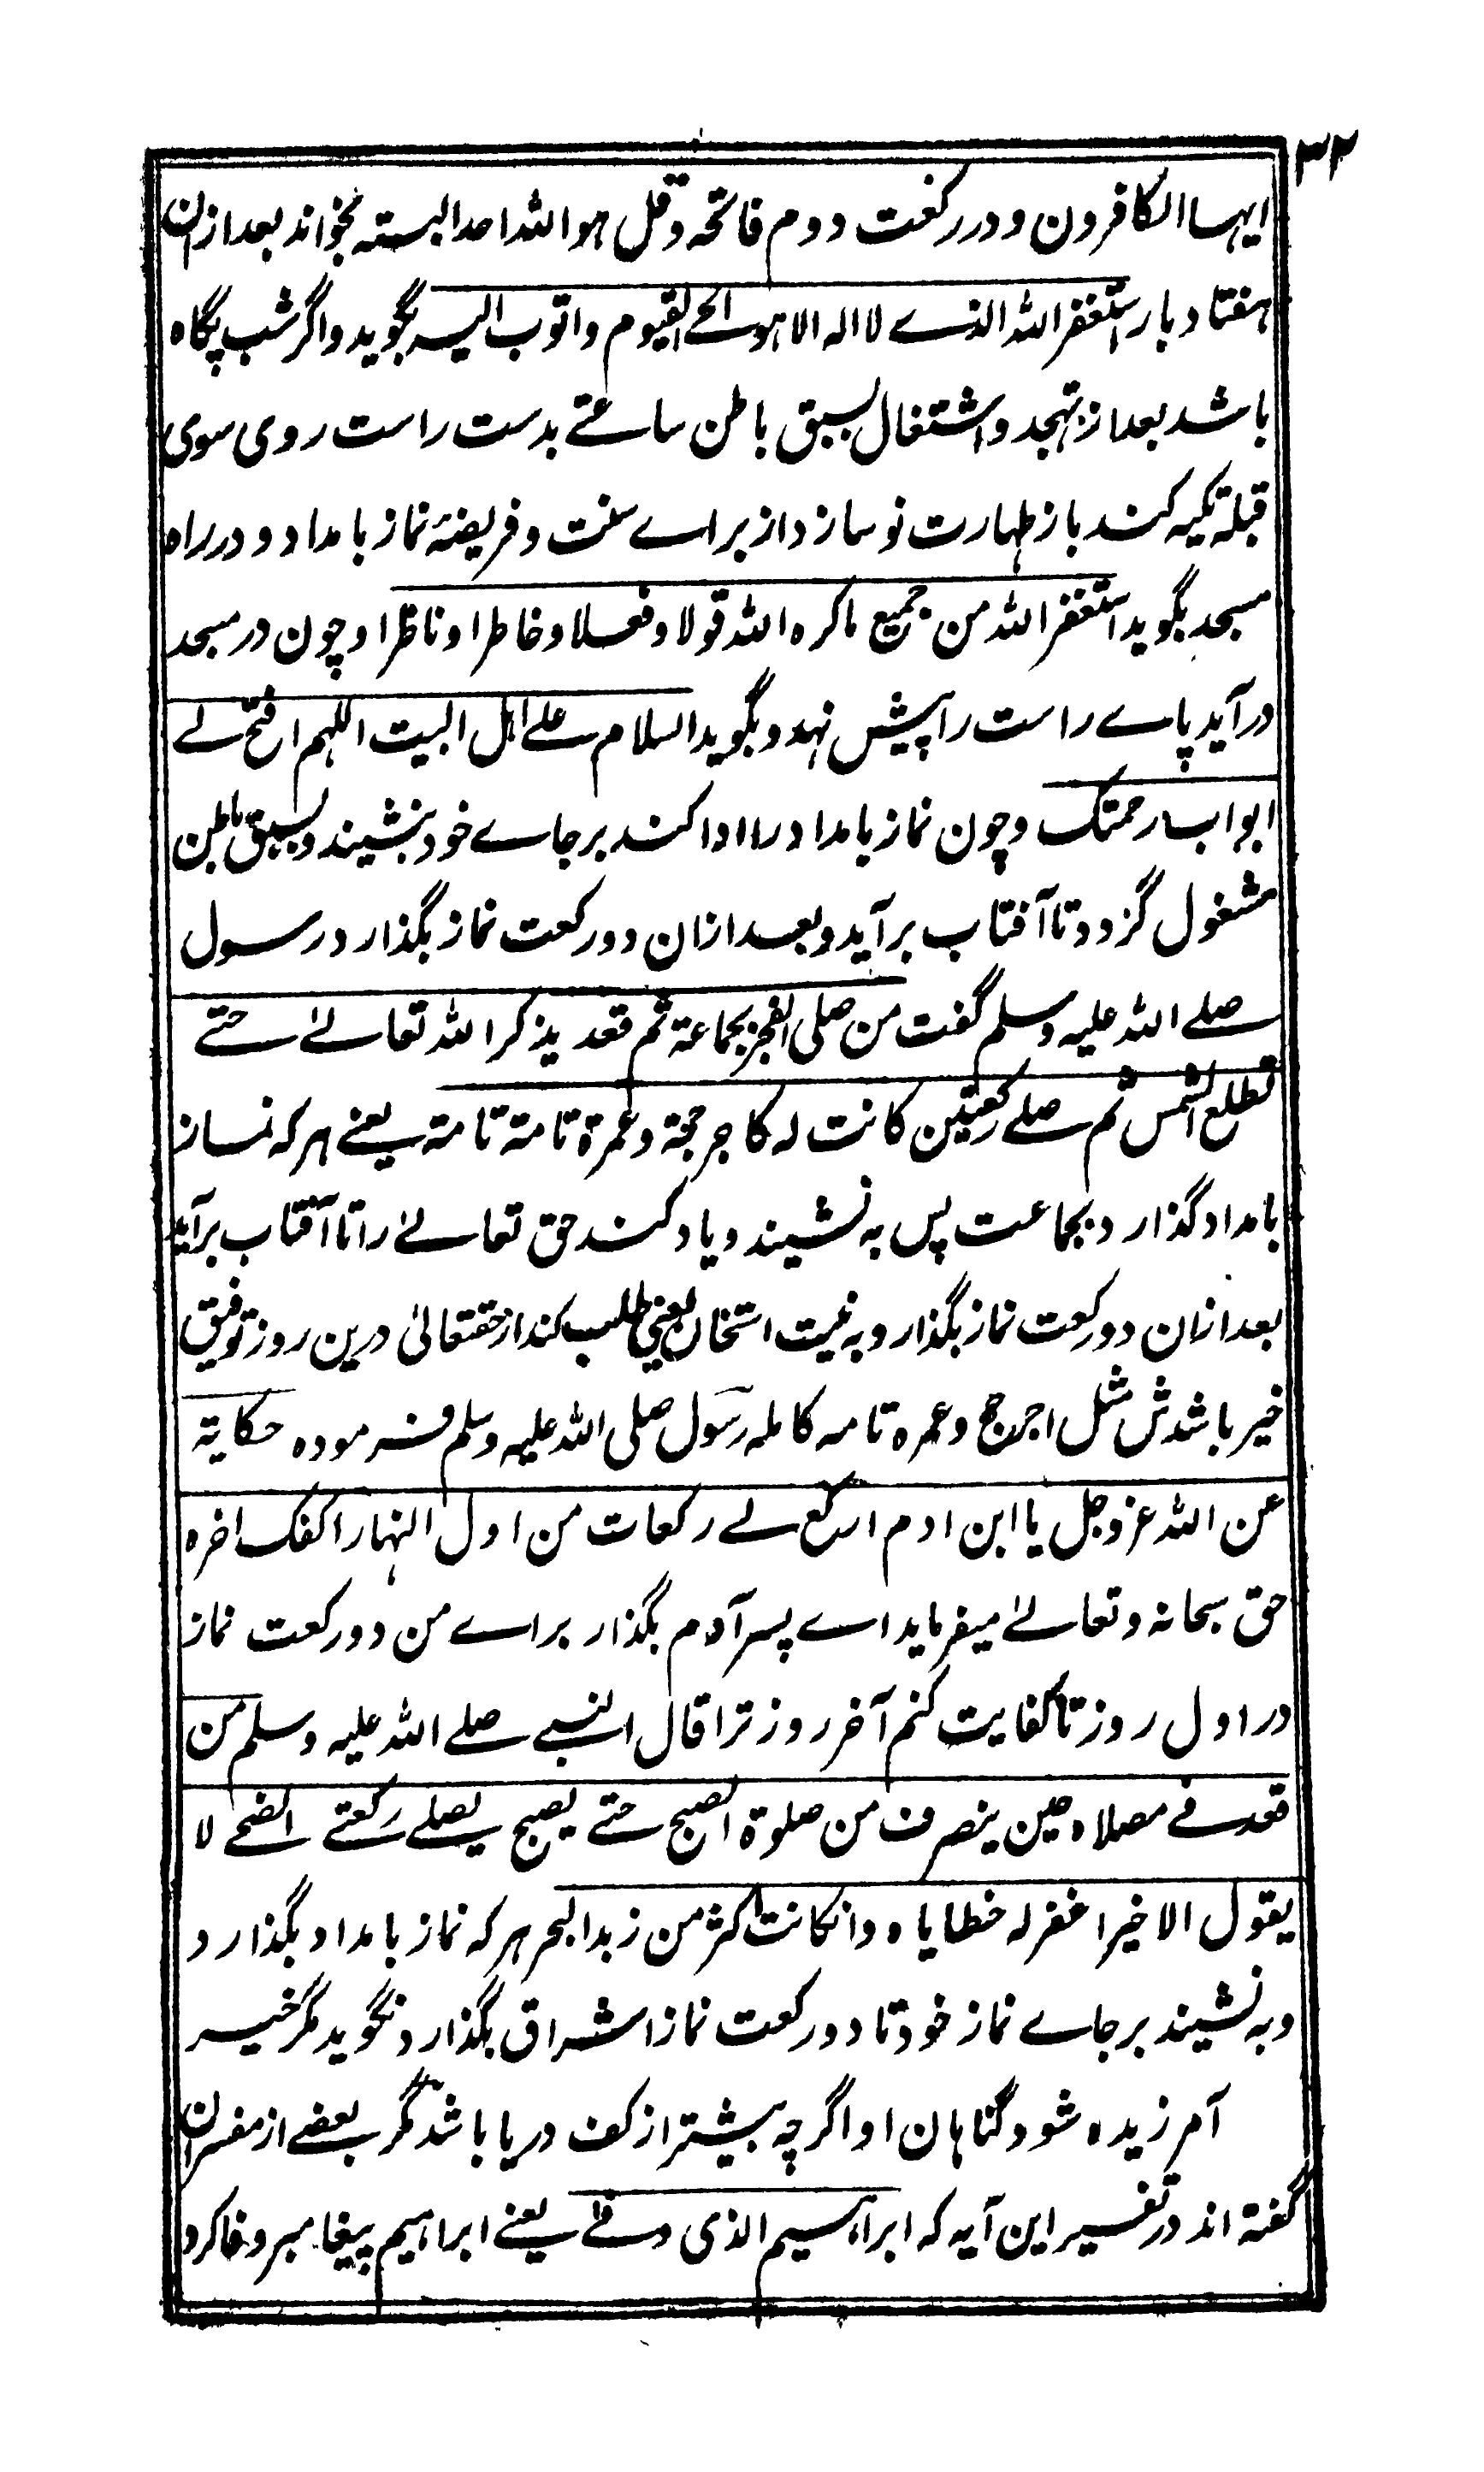 ۳۲
ایہا الکافرون و در رکعت دوم فاتحہ و قل ہو اللہ احد البتہ بخواند بعد ازان
ہفتاد بار استغفر اللہ الذے لا الہ الا ہو الحے القیوم و اتوب الیہ بگوید و اگر شب پگاہ
باشد بعد از تہجد و اشتغال بسبق باطن ساعتے بدست راست روی سوی
قبلہ تکیہ کند باز طہارت نو سازد از براے سنت و فریضۂ نماز بامداد و در راہ
مسجد بگوید استغفر اللہ من جمیع ماکرہ اللہ قولا و فعلا و خاطرا و ناظرا و چون در مسجد
در آید پاے راست را پیش نہد و بگوید السلام علے اہل البیت اللہم افتح لے
ابواب رحمتک و چون نماز بامداد را ادا کند بر جاے خود بنشیند و بسبق باطن
مشغول گردد تا آفتاب برآید و بعد ازان دو رکعت نماز بگذارد رسول
صلے اللہ علیہ و سلم گفت من صلی الفجر بجماعۃ ثم قعد یذکر اللہ تعالےٰ حتے
تطلع الشمس ثم صلے رکعتین کانت لہ کاجر حجۃ و عمرۃ تامۃ تامۃ یعنے ہر کہ نماز
بامداد گذارد بجماعت پس بہ نشیند و یاد کند حق تعالےٰ را تا آفتاب برآید
بعد ازان دو رکعت نماز بگذارد بہ نیت استخارہ یعنی طلب کند از حقتعالیٰ درین روز توفیق
خیر باشدش مثل اجر حج و عمرہ تامہ کاملہ رسول صلی اللہ علیہ وسلم فرمودہ حکایۃ
عن اللہ عز و جل یا ابن ادم ارکع لے رکعات من اول النہار اکفک اخرہ
حق سبحانہ و تعالےٰ میفرماید اے پسر آدم بگذار براے من دو رکعت نماز
در اول روز تا کفایت کنم آخر روز ترا قال النبے صلے اللہ علیہ وسلم من
قعد فے مصلاہ حین ینصرف من صلوۃ الصبح حتے یصبح یصلے رکعتے الضحے لا
یقول الا خیرا غفر لہ خطایاہ و ان کانت اکثر من زبد البحر ہر کہ نماز بامداد بگذارد
و بہ نشیند بر جاے نماز خود تا دو رکعت نماز اشراق بگذارد و نگوید مگر خیر
آمرزیدہ شود گناہان او اگرچہ بیشتر از کف دریا باشد مگر بعضے از مفسران
گفتہ اند در تفسیر این آیہ کہ ابراہیم الذی وفے یعنے ابراہیم پیغامبر وفا کرد